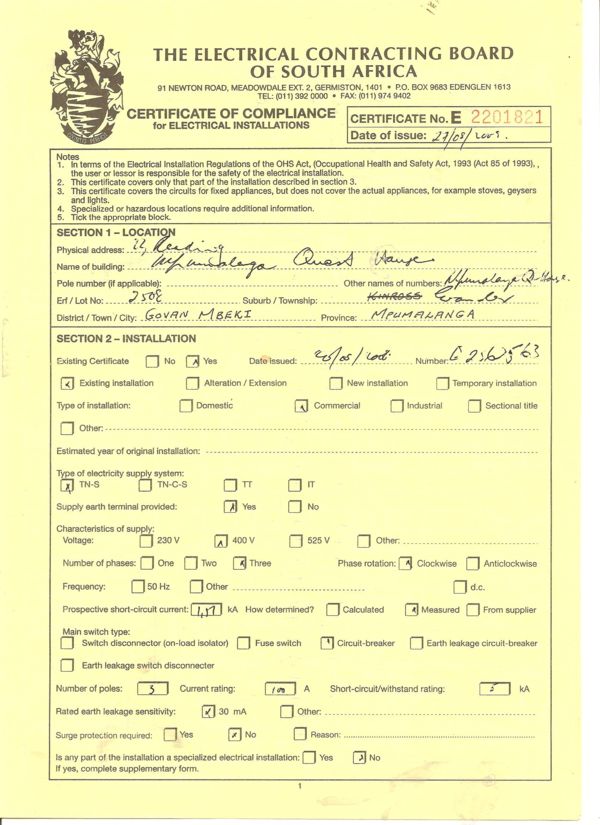 THE ELECTRICAL CONTRACTING BOARD
OF SOUTH AFRICA
91 NEWTON ROAD, MEADOWDALE EXT. 2, GERMISTON, 1401 • P.O. BOX 9683 EDENGLEN 1613
TEL: (011) 392 0000 • FAX: (011) 974 9402
CERTIFICATE OF COMPLIANCE
for ELECTRICAL INSTALLATIONS
CERTIFICATE No. E 2201821
Date of issue: 27/08/2009.
Notes
1. In terms of the Electrical Installation Regulations of the OHS Act, (Occupational Health and Safety Act, 1993 (Act 85 of 1993), ,
the user or lessor is responsible for the safety of the electrical installation.
2. This certificate covers only that part of the installation described in section 3.
3. This certificate covers the circuits for fixed appliances, but does not cover the actual appliances, for example stoves, geysers
and lights.
4. Specialized or hazardous locations require additional information.
5. Tick the appropriate block.
SECTION 1 – LOCATION
Physical address: Reading
Name of building: Mpumalaga Quest House
Pole number (if applicable): Other names of numbers: Mpumalanga
Erf / Lot No.: 2508 Suburb / Township: KINROSS Evander
District / Town / City: GOVAN MBEKI Province: MPUMALANGA
SECTION 2 – INSTALLATION
Existing Certificate No Yes Date issued: Number:
Existing installation Alteration / Extension New installation Temporary installation
Type of installation: Domestic Commercial Industrial Sectional title
Other:
Estimated year of original installation:
Type of electricity supply system:
TN-S TN-C-S TT IT
Supply earth terminal provided: Yes No
Characteristics of supply:
Voltage: 230 V 400 V 525 V Other:
Number of phases: One Two Three Phase rotation: Clockwise Anticlockwise
Frequency: 50 Hz Other d.c.
Prospective short-circuit current: kA How determined? Calculated Measured From supplier
Main switch type:
Switch disconnector (on-load isolator) Fuse switch Circuit-breaker Earth leakage circuit-breaker
Earth leakage switch disconnecter
Number of poles: 3 Current rating: 100 A Short-circuit/withstand rating: 5 kA
Rated earth leakage sensitivity: 30 mA Other:
Surge protection required: Yes No Reason:
Is any part of the installation a specialized electrical installation: Yes No
If yes, complete supplementary form.
1